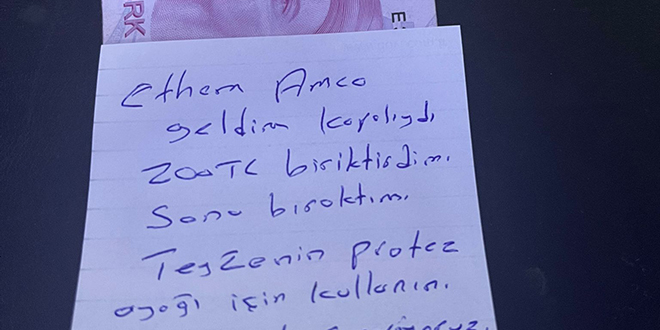 RK
E
Ethem Amca
geldim kapalıydı
200TL biriktirdim.
Sana bıraktım.
Teyzenin protez
ayağı için kullanın.